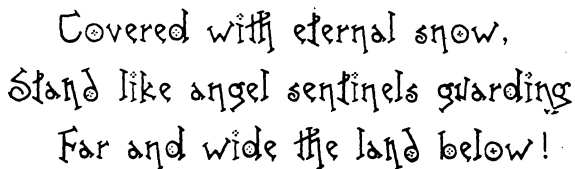 Covered with eternal snow,
Stand like angel sentinels guarding
Far and wide the land below!